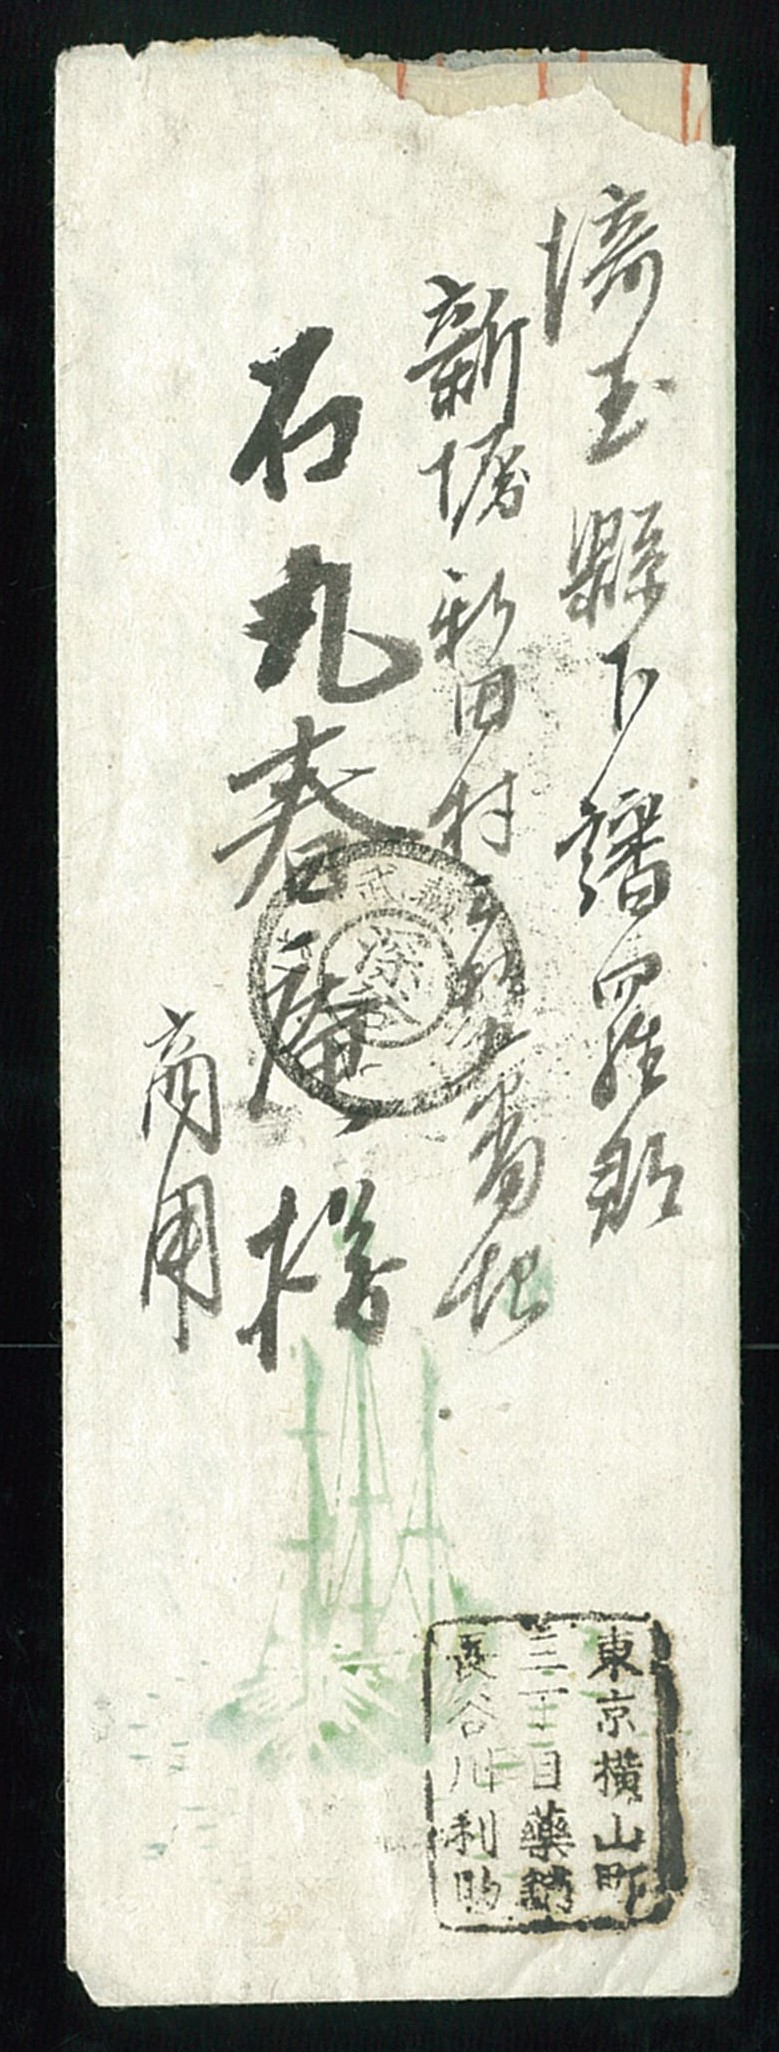 埼玉縣下幡羅郡
新堀新田村 番地
石丸春庵様
商用
武藏
深谷
東京横山町
三丁目藥鋪
長谷川利助